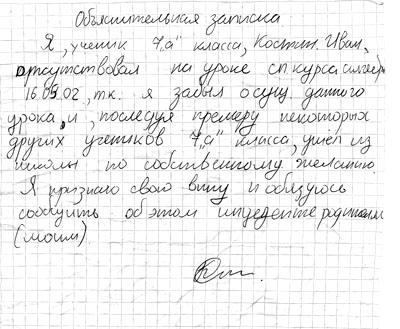 Объяснительная записка
Я, ученик 7„а" класса, Костин Иван,
отсутствовал на уроке спкурса
16.09.02, т.к. я забыл о сущ данного
урока, и, последуя примеру некоторых
других учеников 7„а" класса, ушёл из
школы по собственному желанию.
Я признаю свою вину и обязуюсь
сообщить об этом инцеденте родителям
(моим)